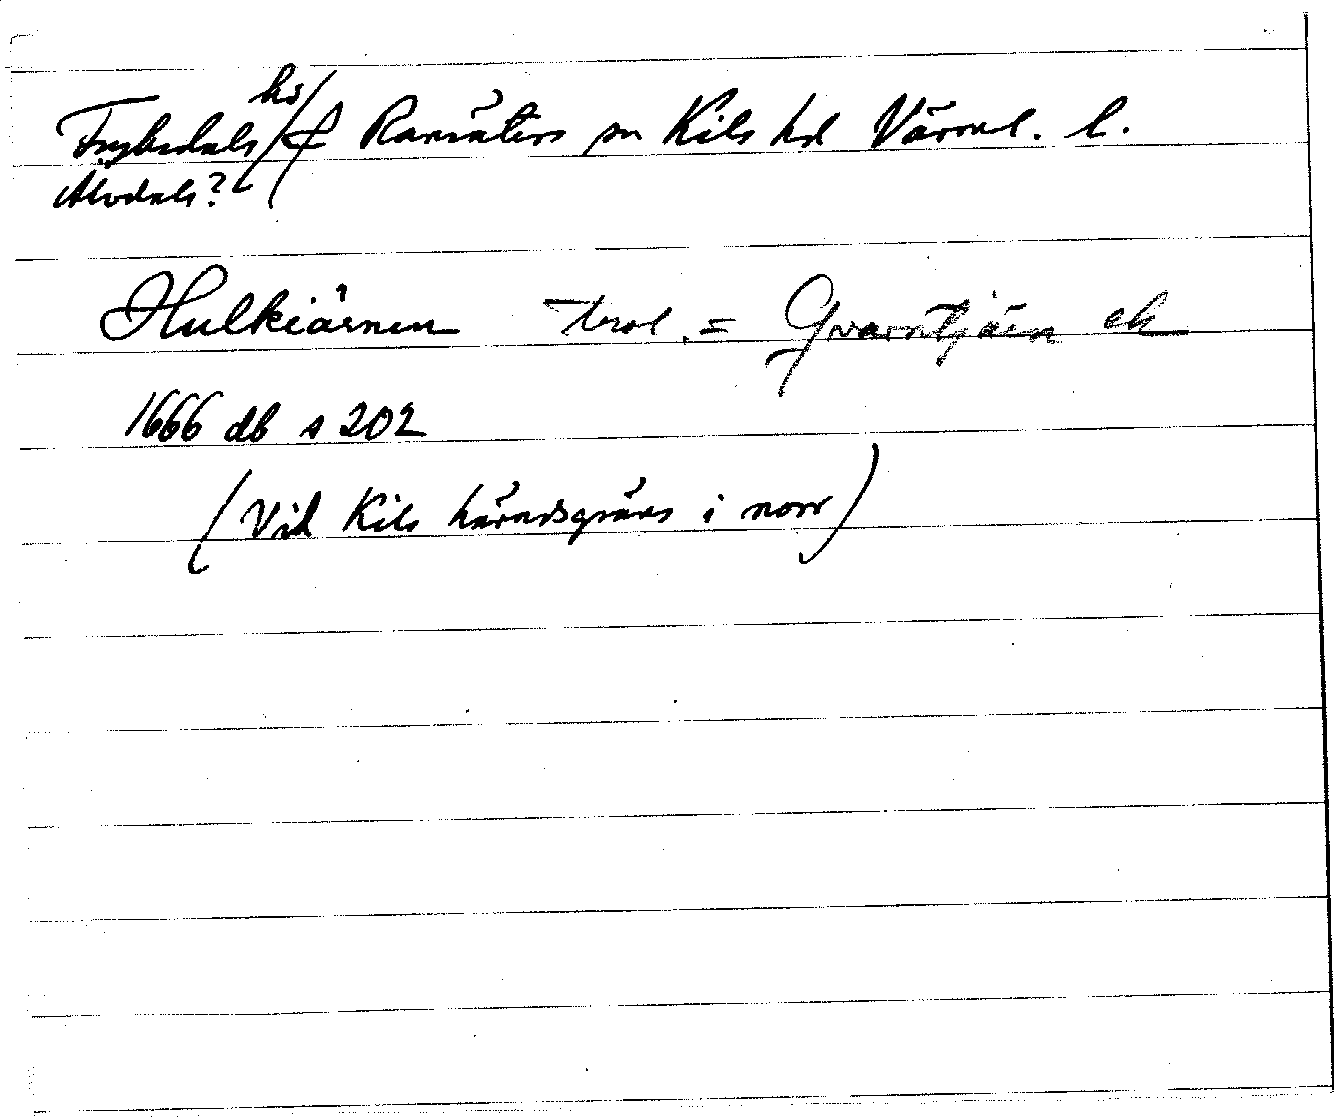 Frykdals hd/f Ransäters sn Kils hd Värml. l.
Älvdals?
Hulkiärnen trol. = Qvarntjärn ek
1666 db s 202
(Vid Kils häradsgräns i norr)